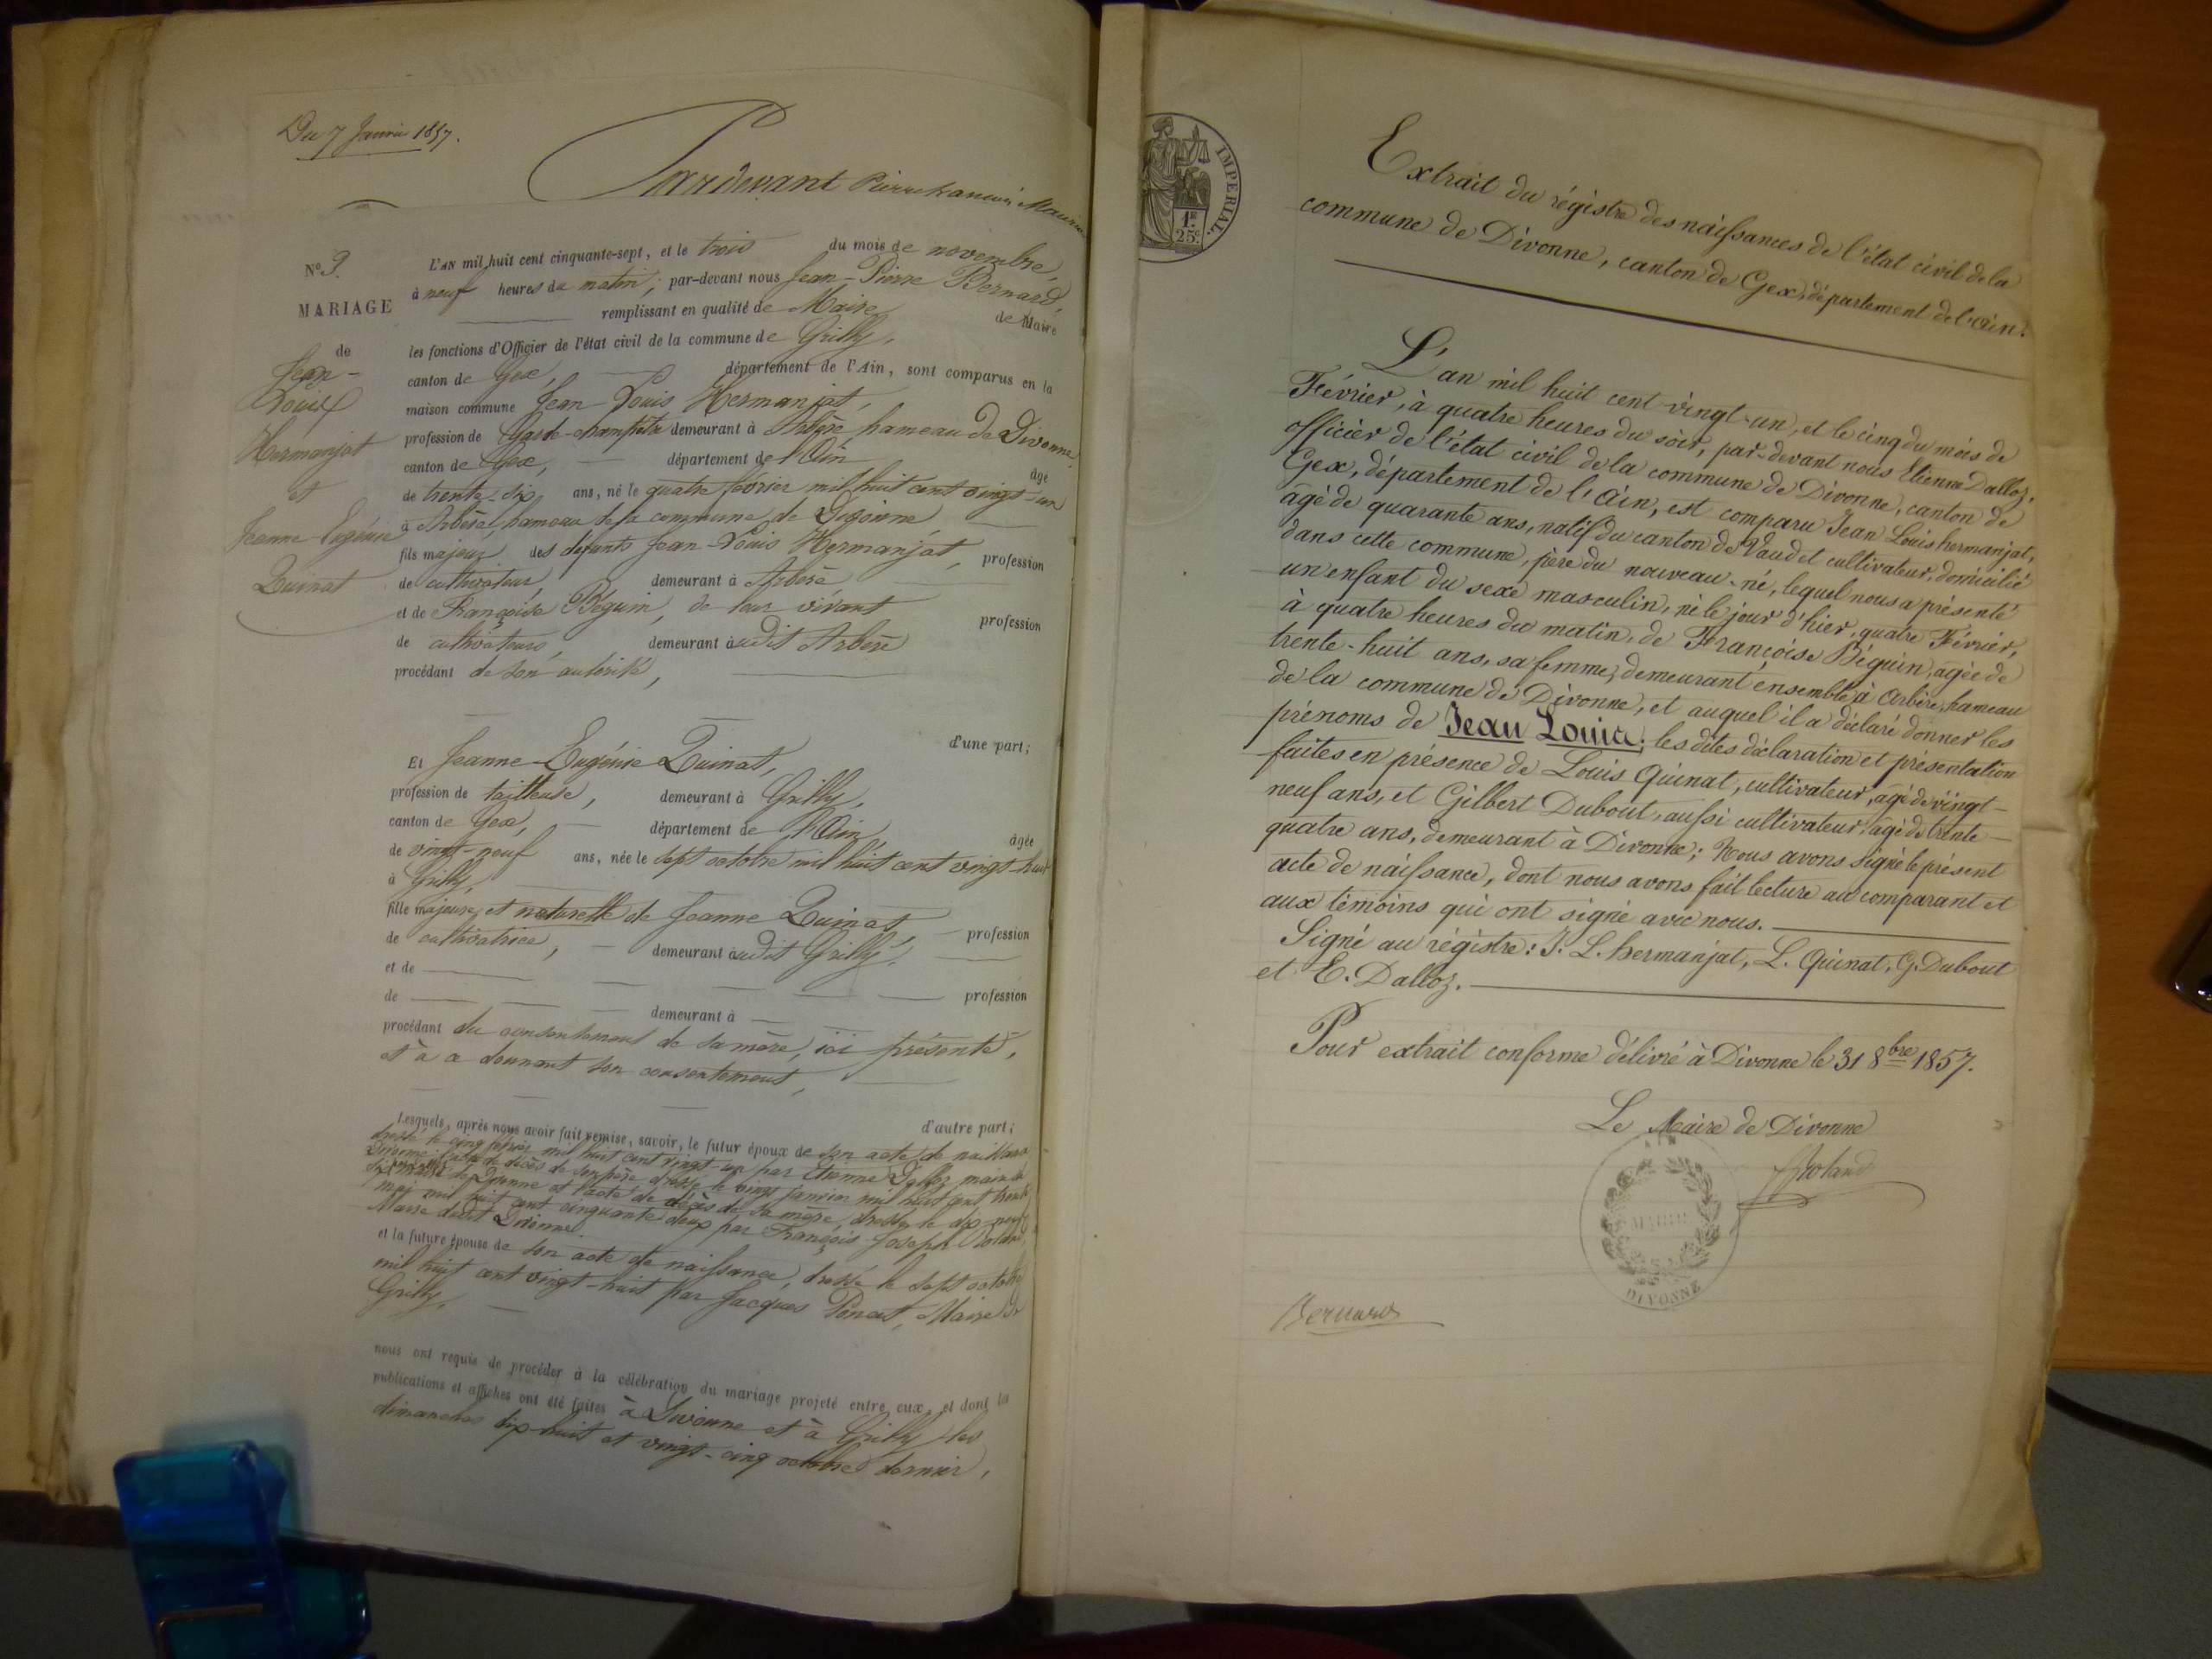 Du 7 Janvier 1857.
Pardevant Pierre François Maurice
N° 9.
MARIAGE
de
Jean-
Louis
Hermanjat
et
Jeanne-Eugénie
Quinat
L'AN mil huit cent cinquante-sept, et le trois du mois de novembre,
à neuf heures du matin, par-devant nous Jean-Pierre Bernard,
remplissant en qualité de Maire de Maire
les fonctions d'Officier de l'état civil de la commune de Grilly,
canton de Gex, département de l'Ain, sont comparus en la
maison commune Jean-Louis Hermanjat,
profession de Garde-champêtre demeurant à Arbère hameau de Divonne,
canton de Gex, département de l'Ain âgé
de trente-six ans, né le quatre février mil huit cent vingt-un
à Arbère, hameau de la commune de Divonne
fils majeur des défunts Jean-Louis Hermanjat, profession
de cultivateur, demeurant à Arbère
et de Françoise Béguin, de leur vivant profession
de cultivateurs, demeurant audit Arbère
procédant de son autorité,
d'une part;
Et Jeanne-Eugénie Quinat,
profession de tailleuse, demeurant à Grilly,
canton de Gex, département de l'Ain, âgée
de vingt-neuf ans, née le sept octobre mil huit cent vingt-huit
à Grilly,
fille majeure et naturelle de Jeanne Quinat, profession
de cultivatrice, demeurant audit Grilly,
et de
de demeurant à profession
procédant du consentement de sa mère, ici présente,
et à ce donnant son consentement,
d'autre part;
Lesquels, après nous avoir fait remise, savoir, le futur époux de son acte de naissance
dressé le cinq février mil huit cent vingt-un par Etienne Dalloz, maire de
Divonne, l'acte de décès de son père dressé le vingt janvier mil huit cent trente
Divonne et l'acte de décès de sa mère, dressé le dix-neuf
mai mil huit cent cinquante-deux par François-Joseph Roland,
Maire dudit Divonne
et la future épouse de son acte de naissance, dressé le sept octobre
mil huit cent vingt-huit par Jacques Poncet, Maire de
Grilly,
nous ont requis de procéder à la célébration du mariage projeté entre eux, et dont les
publications et affiches ont été faites à Divonne et à Grilly les
dimanches dix-huit et vingt-cinq octobre dernier,
IMPERIAL.
1F
25c
Extrait du régistre des naissances de l'état civil de la
commune de Divonne, canton de Gex, département de l'Ain.
L'an mil huit cent vingt-un, et le cinq du mois de
Février, à quatre heures du soir, par-devant nous Etienne Dalloz,
officier de l'état civil de la commune de Divonne, canton de
Gex, département de l'Ain, est comparu Jean Louis hermanjat,
âgé de quarante ans, natif du canton de Vaud et cultivateur, domicilié
dans cette commune, père du nouveau-né, lequel nous a présenté
un enfant du sexe masculin, né le jour d'hier, quatre Février,
à quatre heures du matin, de Françoise Béguin, agée de
trente-huit ans, sa femme, demeurant ensemble à Arbère, hameau
de la commune de Divonne, et auquel il a déclaré donner les
prénoms de Jean Louis; les dites déclaration et présentation
faites en présence de Louis Quinat, cultivateur, agé de vingt-
neuf ans, et Gilbert Dubout, aussi cultivateur, agé de trente-
quatre ans, demeurant à Divonne; Nous avons signé le présent
acte de naissance, dont nous avons fait lecture au comparant et
aux témoins qui ont signé avec nous.
Signé au régistre: J. L. hermanjat, L. Quinat, G. Dubout
et E. Dalloz.
Pour extrait conforme délivré à Divonne le 31 8bre 1857.
Le Maire de Divonne
Roland
MAIRIE
DIVONNE
Bernard